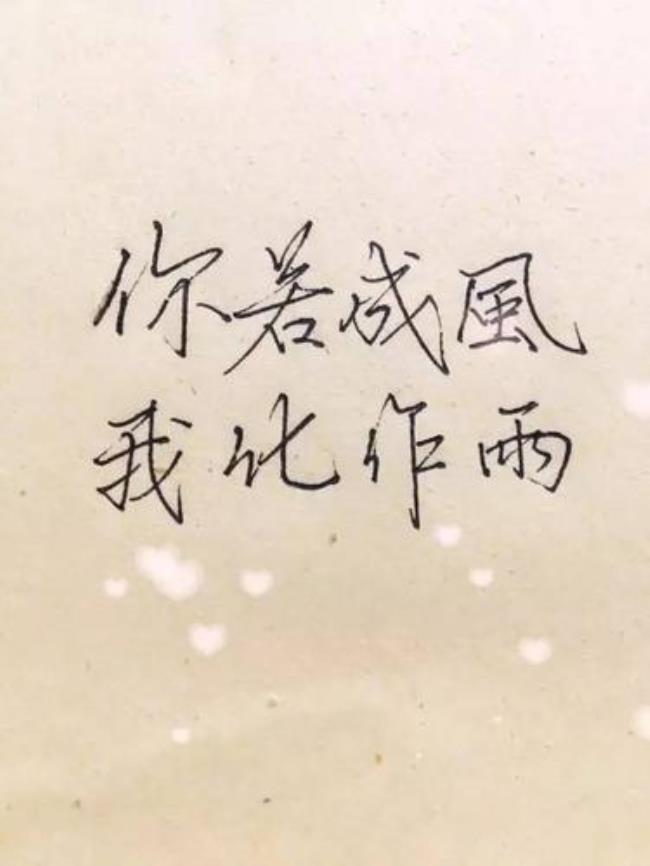 你若成風
我化作雨